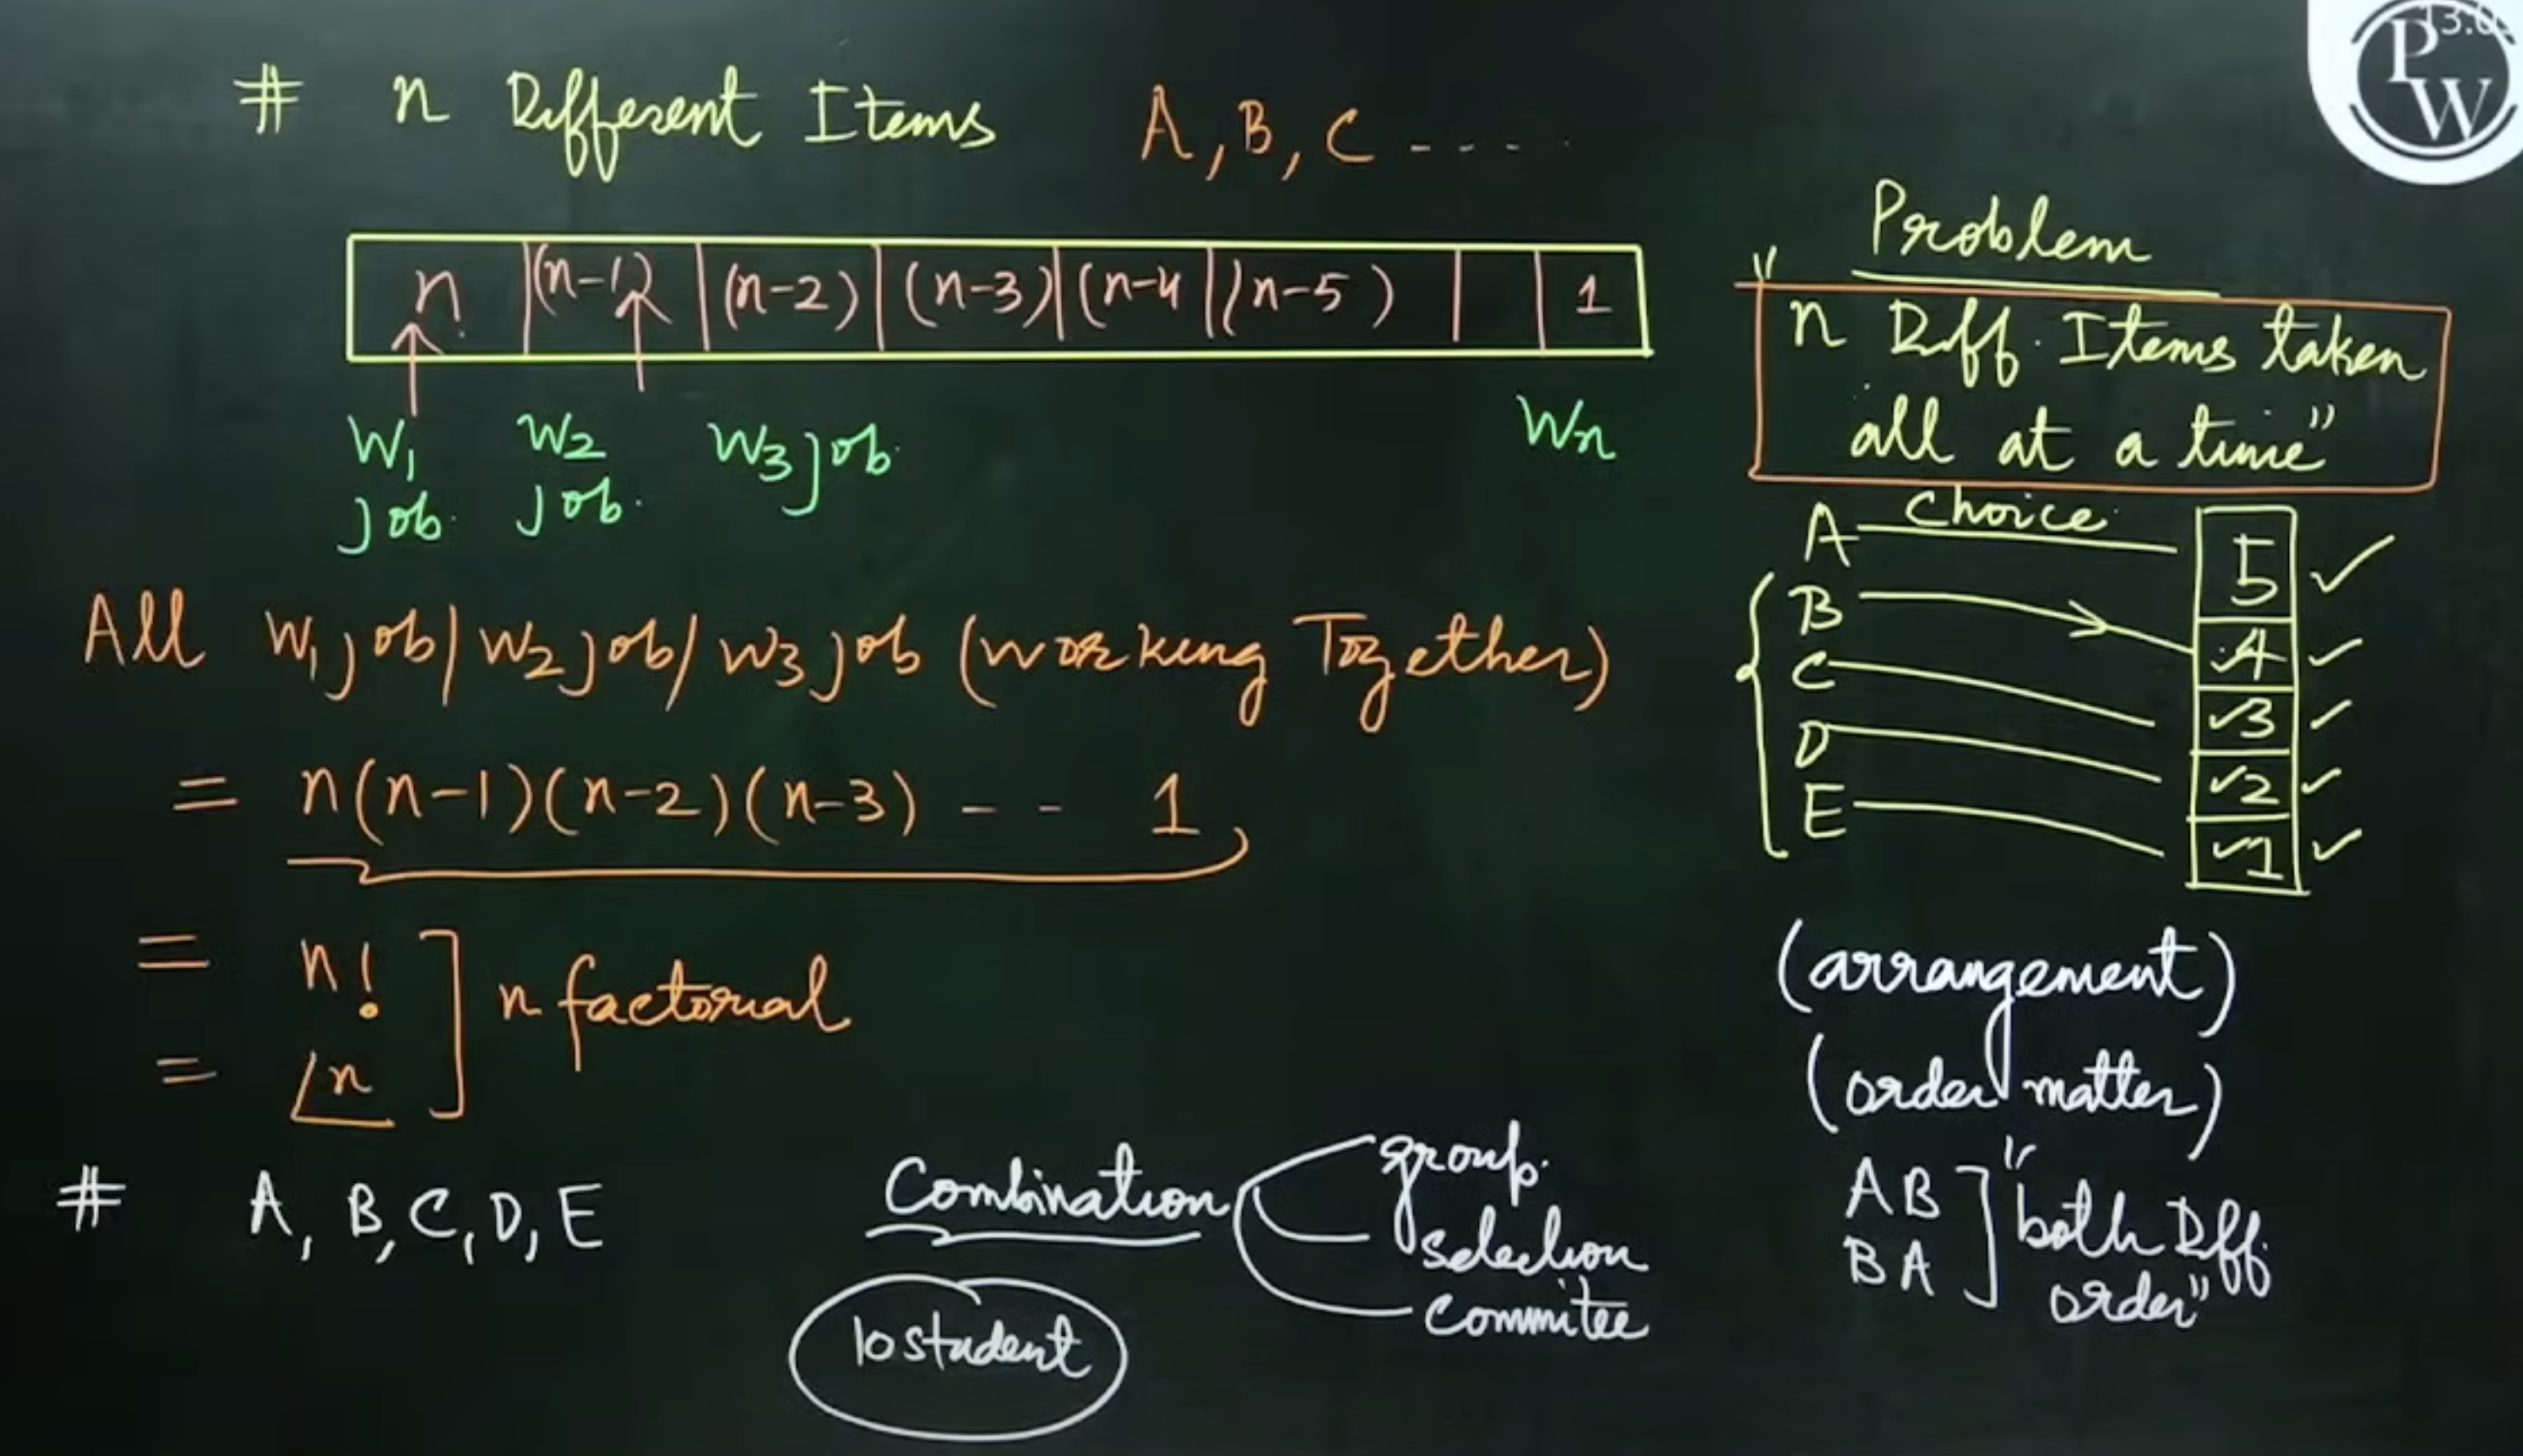 # n Different Items A, B, C ----
n (n-1) (n-2) (n-3) (n-4 (n-5) 1
W1 job. W2 job. W3 job. Wn
All W1 job / W2 job / W3 job (working Together)
= n(n-1)(n-2)(n-3) -- 1
= n!
= ⌊n
n factorial
# A, B, C, D, E
Combination
group.
selection
commitee
10 student
PW
13:0
Problem
"n Diff. Items taken
all at a time"
Choice
A 5 ✓
B 4 ✓
C ✓3 ✓
D ✓2 ✓
E ✓1 ✓
(arrangement)
(order matter)
AB
BA
"both Diff.
order"